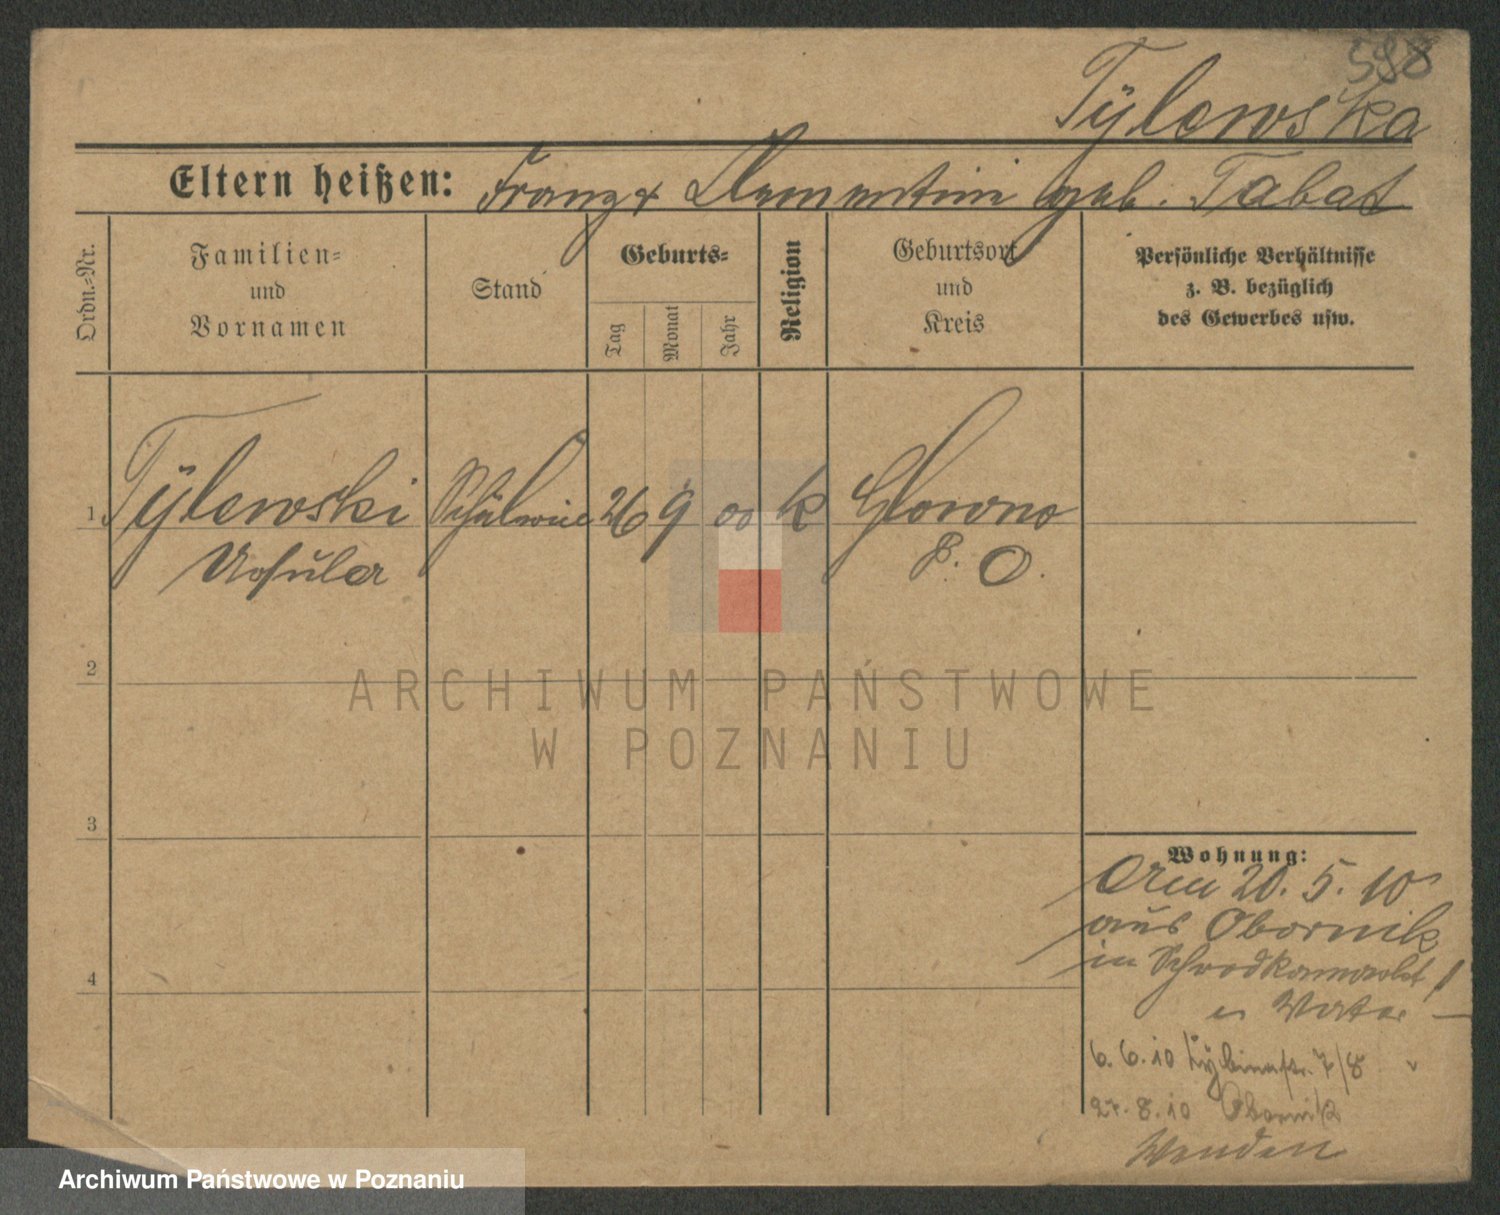 598
Tÿlewska
Eltern heißen: Franz & Clementine geb. Tabat
Ordn.=Nr.
Familien=
und
Vornamen
Stand
Geburts=
Tag
Monat
Jahr
Religion
Geburtsort
und
Kreis
Persönliche Verhältnisse
z. B. bezüglich
des Gewerbes usw.
1 Tÿlewski Schülerin 26 9 00 k Glowno
Ursula P. O.
2
ARCHIWUM PAŃSTWOWE
W POZNANIU
3
4
Wohnung:
20. 5. 10
aus Obornik
in
Vater
6. 6. 10 Zÿbinastr. 7/8
27. 8. 10 Obornik
Wenden
Archiwum Państwowe w Poznaniu